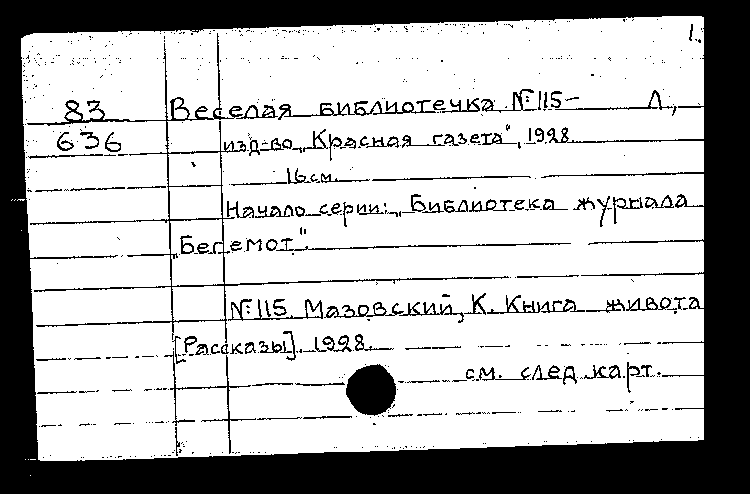 1.
83 Веселая библиотечка №115- Л.,
636 изд-во „Красная газета", 1928
16 см.
Начало серии: „Библиотека журнала
„Бегемот".
№115 Мазовский, К. Книга живота
[Рассказы]. 1928.
см. след карт.